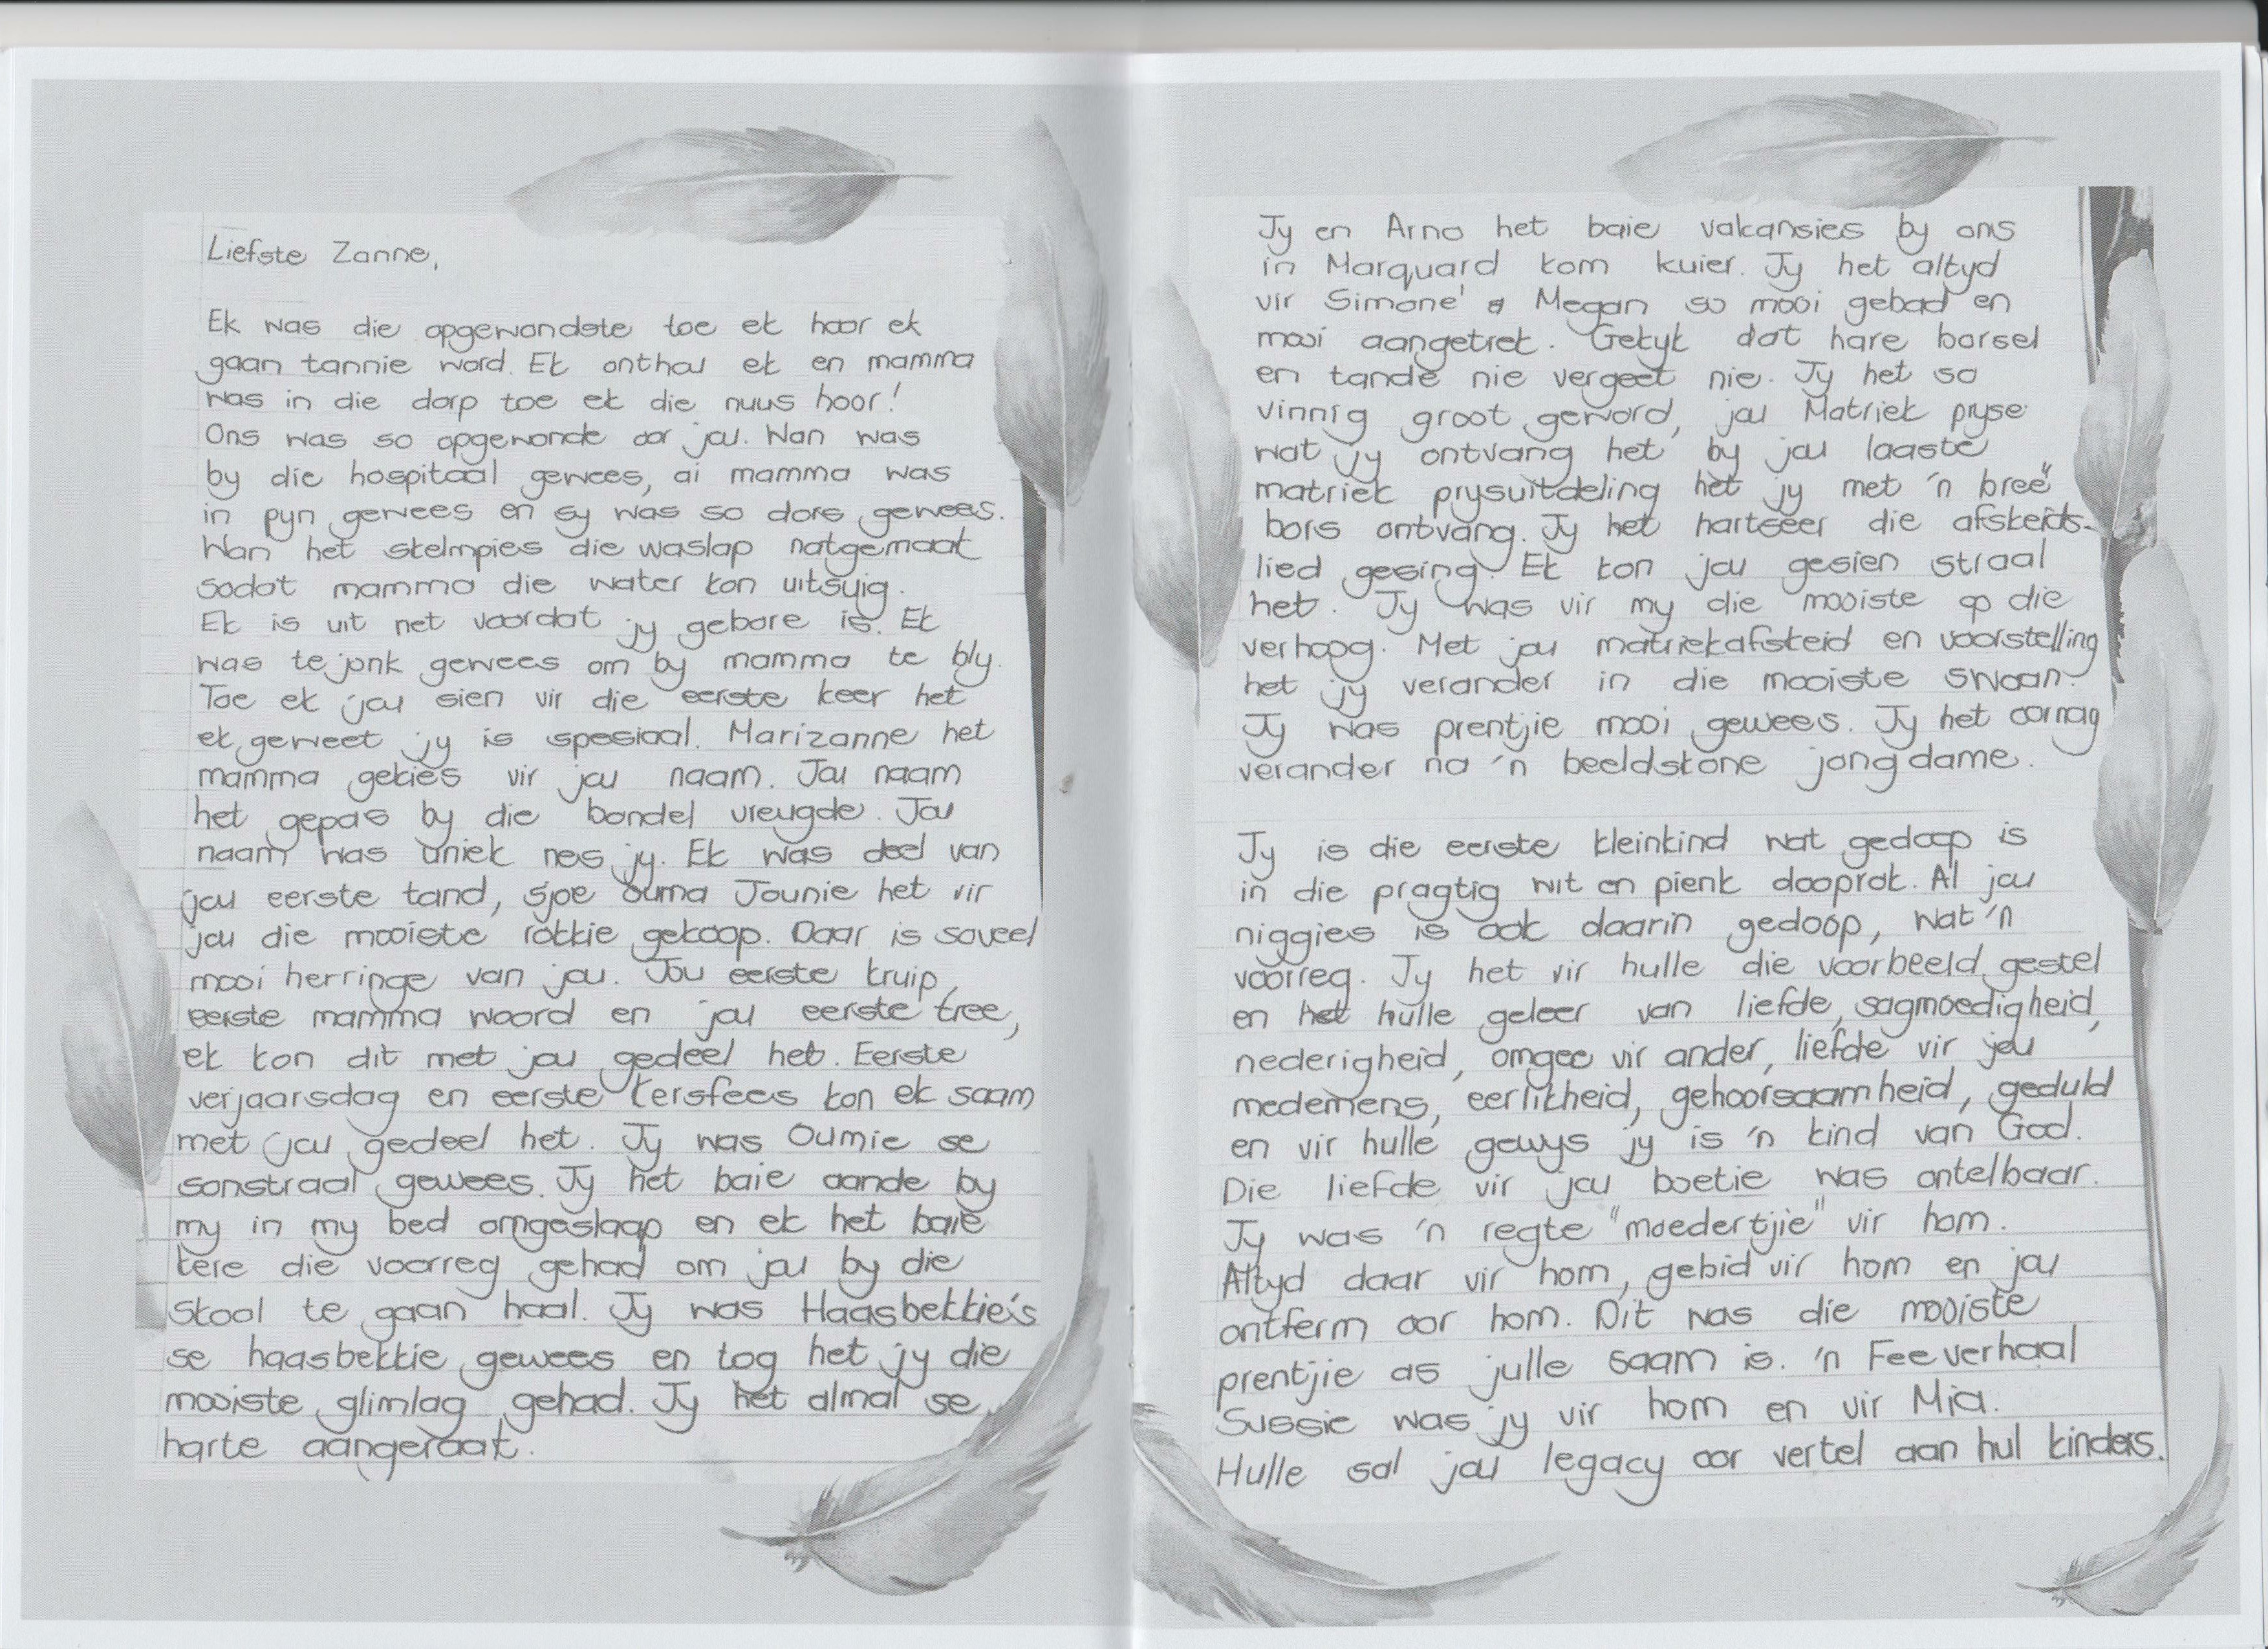 Liefste Zanne,
Ek was die opgewondste toe ek hoor ek
gaan tannie word. Ek onthou ek en mamma
was in die dorp toe ek die nuus hoor!
Ons was so opgewonde oor jou. Wan was
by die hospitaal gewees, ai mamma was
in pyn gewees en sy was so dors gewees.
Wan het stelmpies die waslap natgemaak
sodat mamma die water kon uitsuig.
Ek is uit net voordat jy gebore is. Ek
was te jonk gewees om by mamma te bly.
Toe ek jou sien vir die eerste keer het
ek geweet jy is spesiaal. Marizanne het
mamma gekies vir jou naam. Jou naam
het gepas by die bondel vreugde. Jou
naam was uniek nes jy. Ek was deel van
jou eerste tand, sjoe Ouma Jounie het vir
jou die mooiste rokkie gekoop. Daar is soveel
mooi herringe van jou. Jou eerste kruip,
eerste mamma woord en jou eerste tree,
ek kon dit met jou gedeel het. Eerste
verjaarsdag en eerste Kersfees kon ek saam
met jou gedeel het. Jy was Oumie se
sonstraal gewees. Jy het baie aande by
my in my bed omgeslaap en ek het baie
kere die voorreg gehad om jou by die
Skool te gaan haal. Jy was Haasbekkie's
se haasbekkie gewees en tog het jy die
mooiste glimlag gehad. Jy het almal se
harte aangeraak.
Jy en Arno het baie vakansies by ons
in Marquard kom kuier. Jy het altyd
vir Simone' & Megan so mooi gebad en
mooi aangetrek. Gekyk dat hare borsel
en tande nie vergeet nie. Jy het so
vinnig groot geword, jou Matriek pryse
wat jy ontvang het by jou laaste
matriek prysuitdeling het jy met 'n breë
bors ontvang. Jy het hartseer die afskeids-
lied gesing. Ek kon jou gesien straal
het. Jy was vir my die mooiste op die
verhoog. Met jou matriekafskeid en voorstelling
het jy verander in die mooiste swaan.
Jy was prentjie mooi gewees. Jy het oornag
verander na 'n beeldskone jong dame.
Jy is die eerste kleinkind wat gedoop is
in die pragtig wit en pienk dooprok. Al jou
niggies is ook daarin gedoop, wat 'n
voorreg. Jy het vir hulle die voorbeeld gestel
en het hulle geleer van liefde, sagmoedigheid,
nederigheid, omgee vir ander, liefde vir jou
medemens, eerlikheid, gehoorsaamheid, geduld
en vir hulle gewys jy is 'n kind van God.
Die liefde vir jou boetie was ontelbaar.
Jy was 'n regte "moedertjie" vir hom.
Altyd daar vir hom, gebid vir hom en jou
ontferm oor hom. Dit was die mooiste
prentjie as julle saam is. 'n Feeverhaal
Sussie was jy vir hom en vir Mia.
Hulle sal jou legacy oor vertel aan hul kinders.